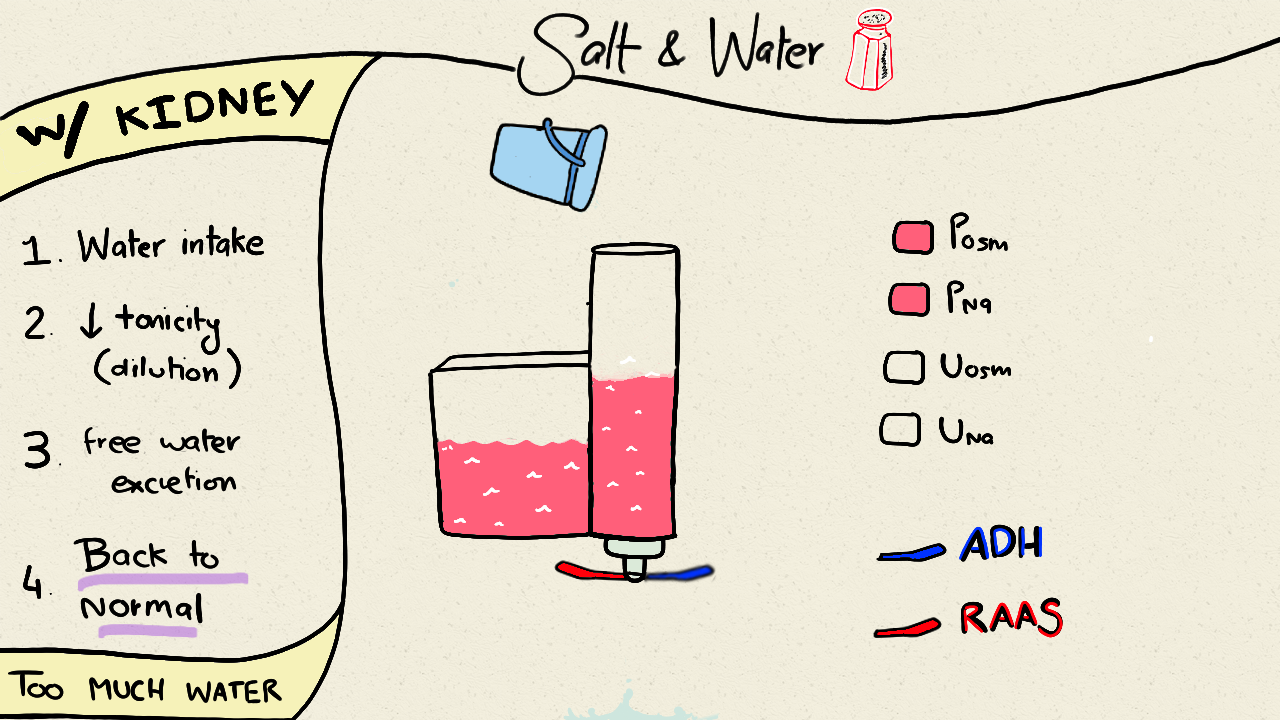 Salt & Water
W/ KIDNEY
1. Water intake
2. ↓ tonicity
(dilution)
3. free water
excretion
4. Back to
Normal
TOO MUCH WATER
Posm
PNa
Uosm
UNa
ADH
RAAS